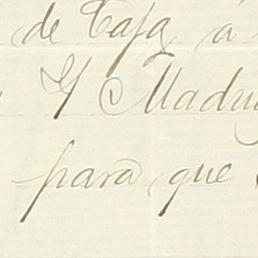 de Caja á
Y Madrid
para que